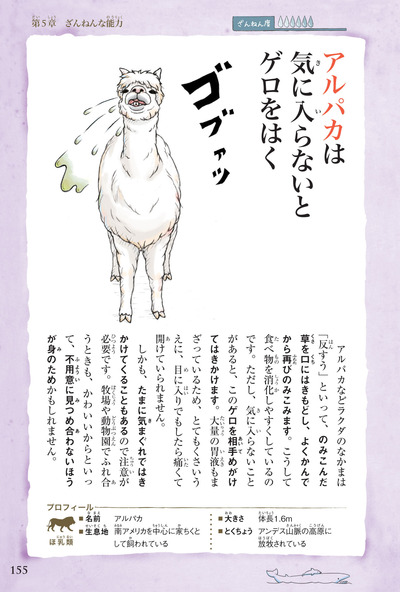 第5章 ざんねんな能力
ざんねん度
アルパカは
気に入らないと
ゲロをはく
ゴブァッ
アルパカなどラクダのなかまは
「反すう」といって、のみこんだ
草を口にはきもどし、よくかんで
から再びのみこみます。こうして
食べ物を消化しやすくしているの
です。ただし、気に入らないこと
があると、このゲロを相手めがけ
てはきかけます。大量の胃液もま
ざっているため、とてもくさいう
えに、目に入りでもしたら痛くて
開けていられません。
しかも、たまに気まぐれではき
かけてくることもあるので注意が
必要です。牧場や動物園でふれ合
うときも、かわいいからといっ
て、不用意に見つめ合わないほう
が身のためかもしれません。
プロフィール
ほ乳類
■名前 アルパカ
■生息地 南アメリカを中心に家ちくと
して飼われている
■大きさ 体長1.6m
■とくちょう アンデス山脈の高原に
放牧されている
155